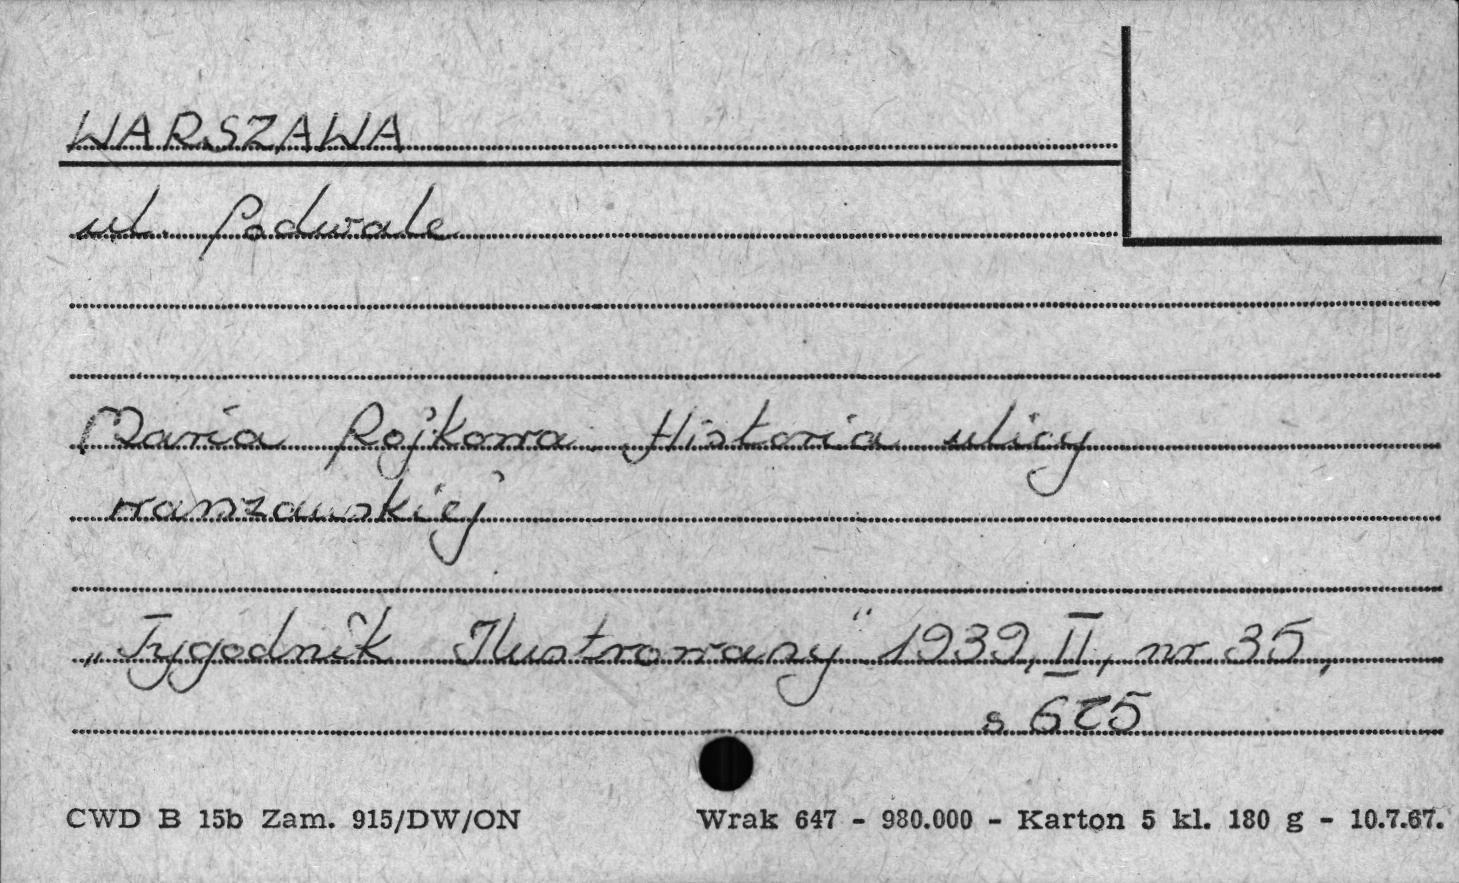 WARSZAWA
ul. Podwale
Maria Rojkowa. Historia ulicy
warszawskiej
„Tygodnik Ilustrowany" 1939, II, nr 35,
s 675
CWD B 15b Zam. 915/DW/ON Wrak 647 - 980.000 - Karton 5 kl. 180 g - 10.7.67.